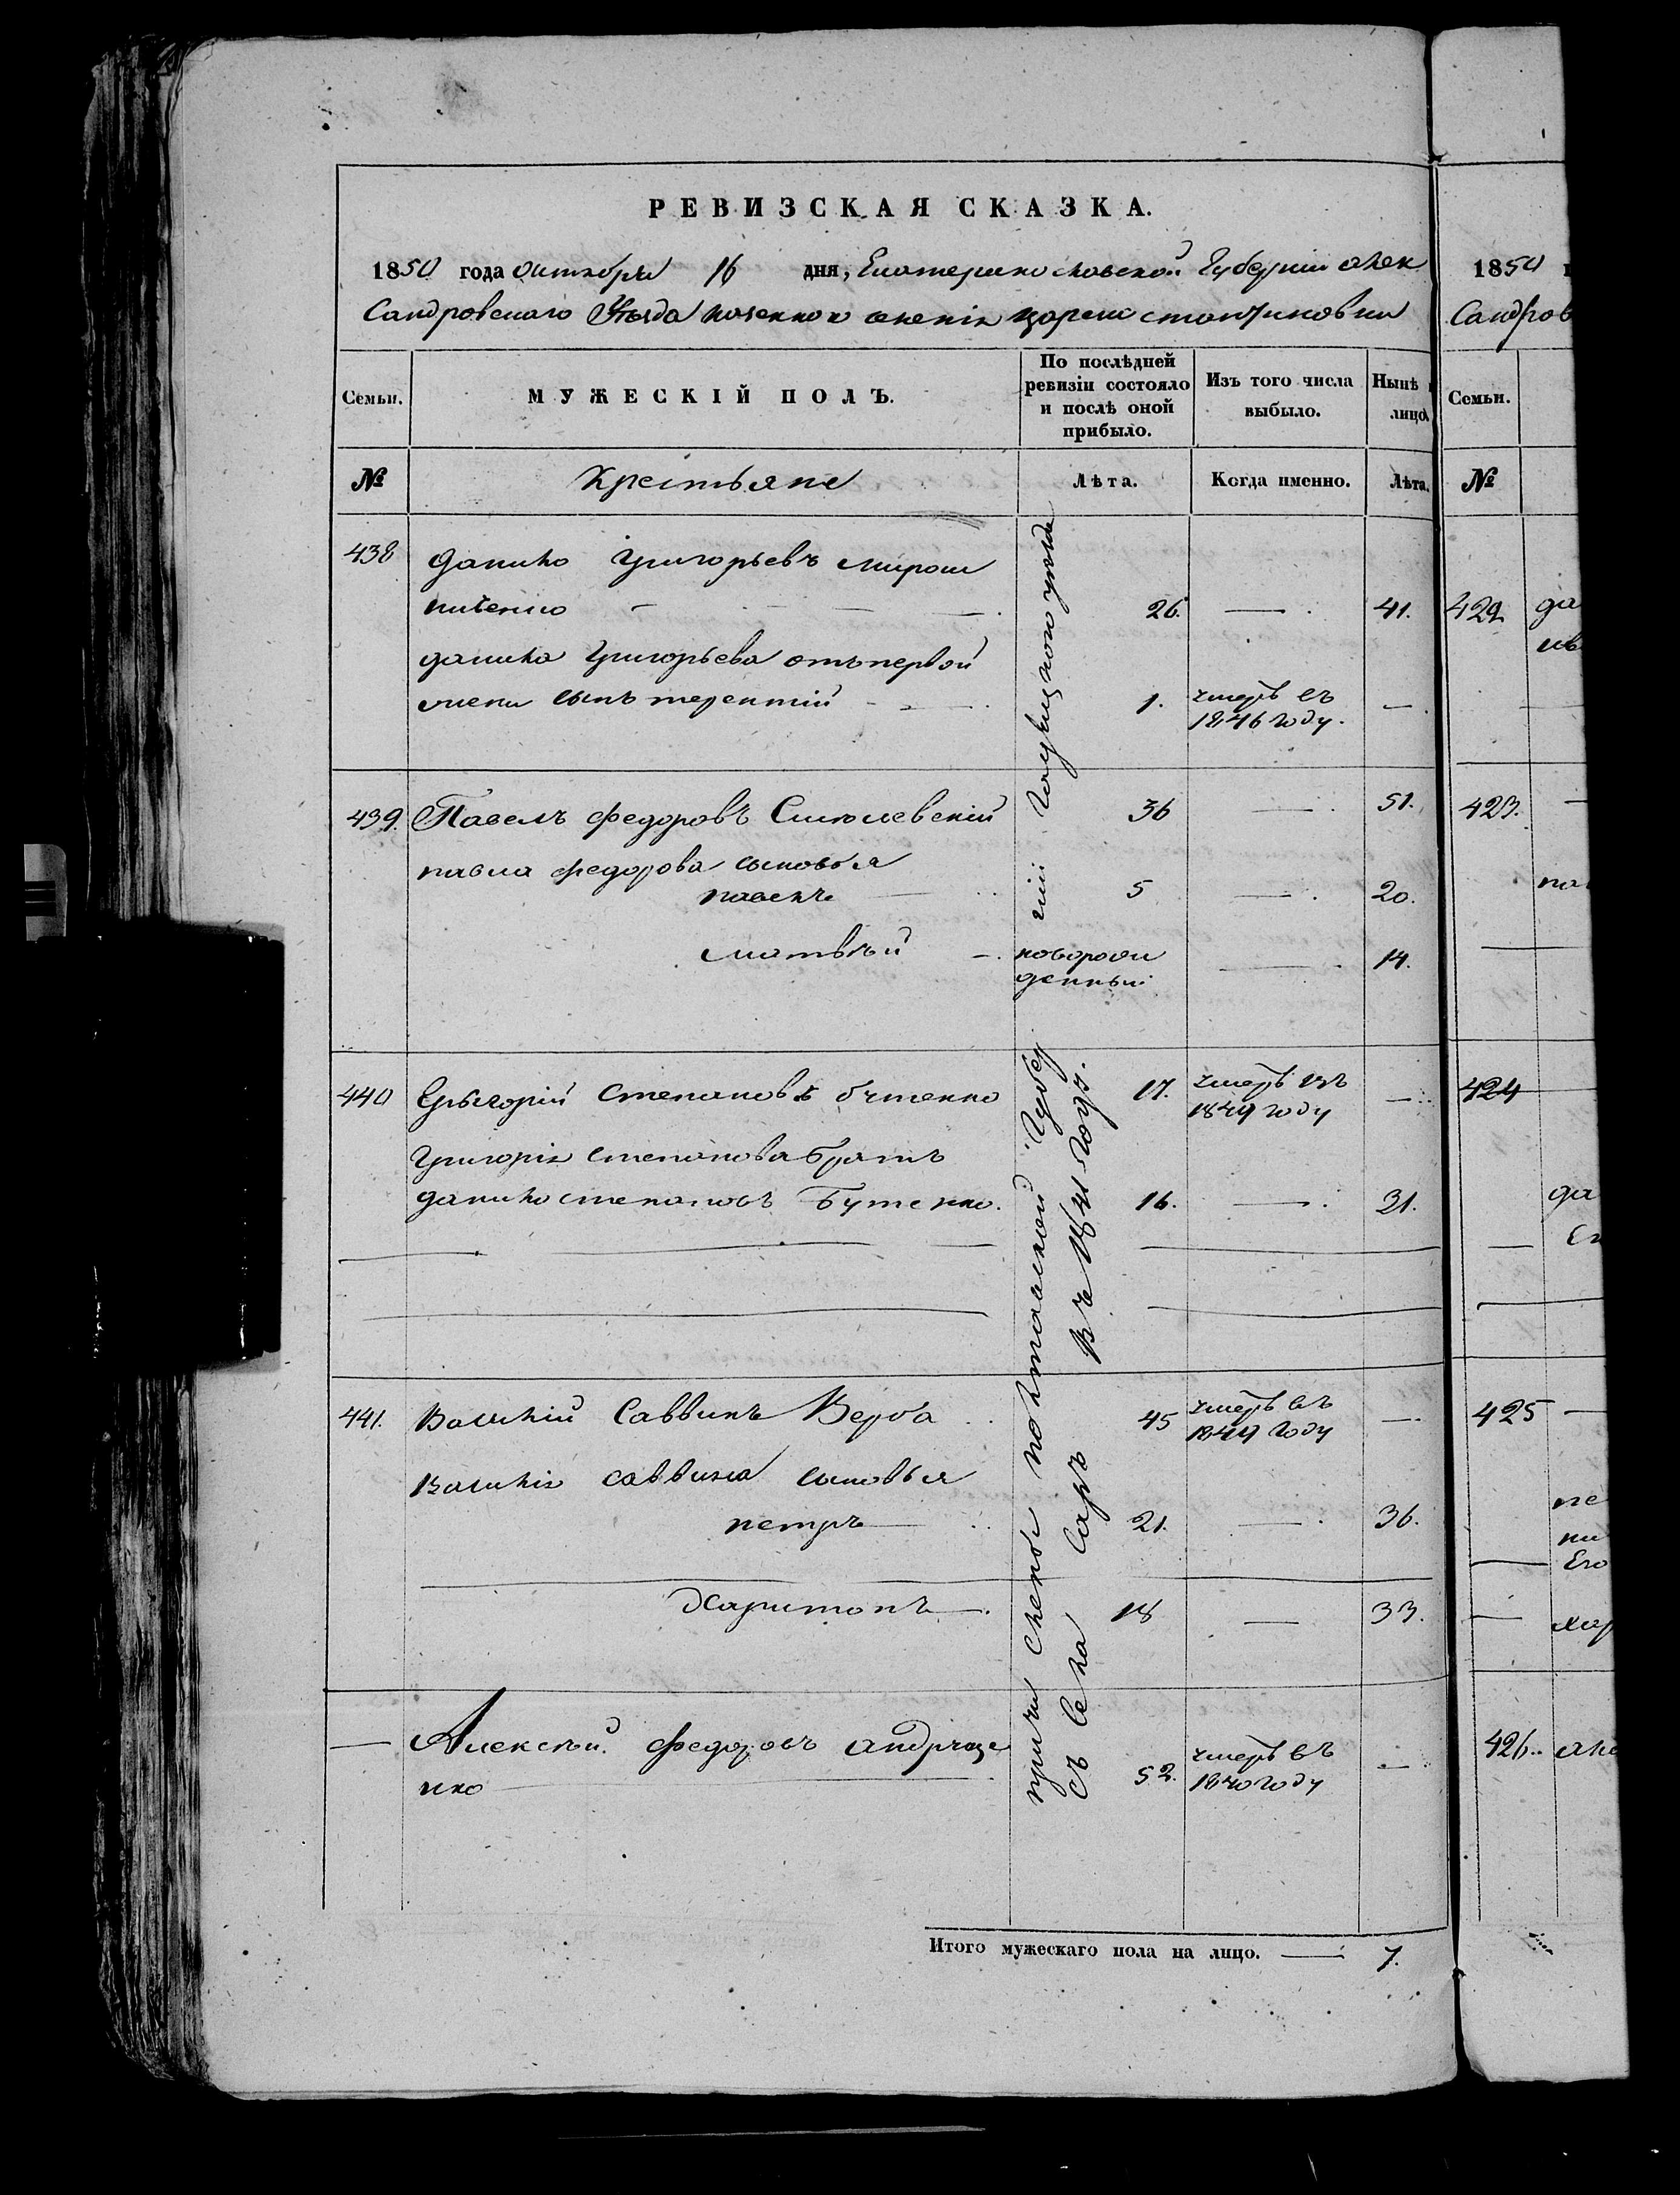 РЕВИЗСКАЯ СКАЗКА.
1850 года октября 16 дня, Екатеринославской Губернiи Алек
сандровского Уѣзда казенного селенiя Цареконстантиновки
Семьи.
МУЖЕСКIЙ ПОЛЪ.
По послѣдней ревизiи состояло и послѣ оной прибыло.
Изъ того числа выбыло.
Нынѣ
лицо.
№ Крестьяне Лѣта. Когда именно. Лѣта.
438 данило Григорьевъ мирош
ниченко 26. — 41.
данила Григорьева отъ первой
жены сынъ терентiй 1. умеръ въ 1846 году. —
439. Павелъ федоровъ 36 — 51.
павла федорова сыновья
павелъ 5 — 20.
матвѣй новорож
денный — 14.
440 Григорiй степановъ бутенко 17. умеръ въ 1849 году —
Григорiя степанова братъ
данило степановъ Бутенко. 16. — 31.
441. Василiй Саввинъ Верба 45 умеръ въ 1849 году —
Василiя саввина сыновья
петръ 21. — 36.
Харитонъ 18 — 33.
— Алексѣй федоровъ андрющен
ко 52. умеръ въ 1840 году —
причислены полтавской губер
нiи уѣзда
съ села въ году.
Итого мужескаго пола на лицо. — 7.
1850
Сандров
Семьи.
№
422 да
423. —
424
да
425 —
пе
Его
хар
426.